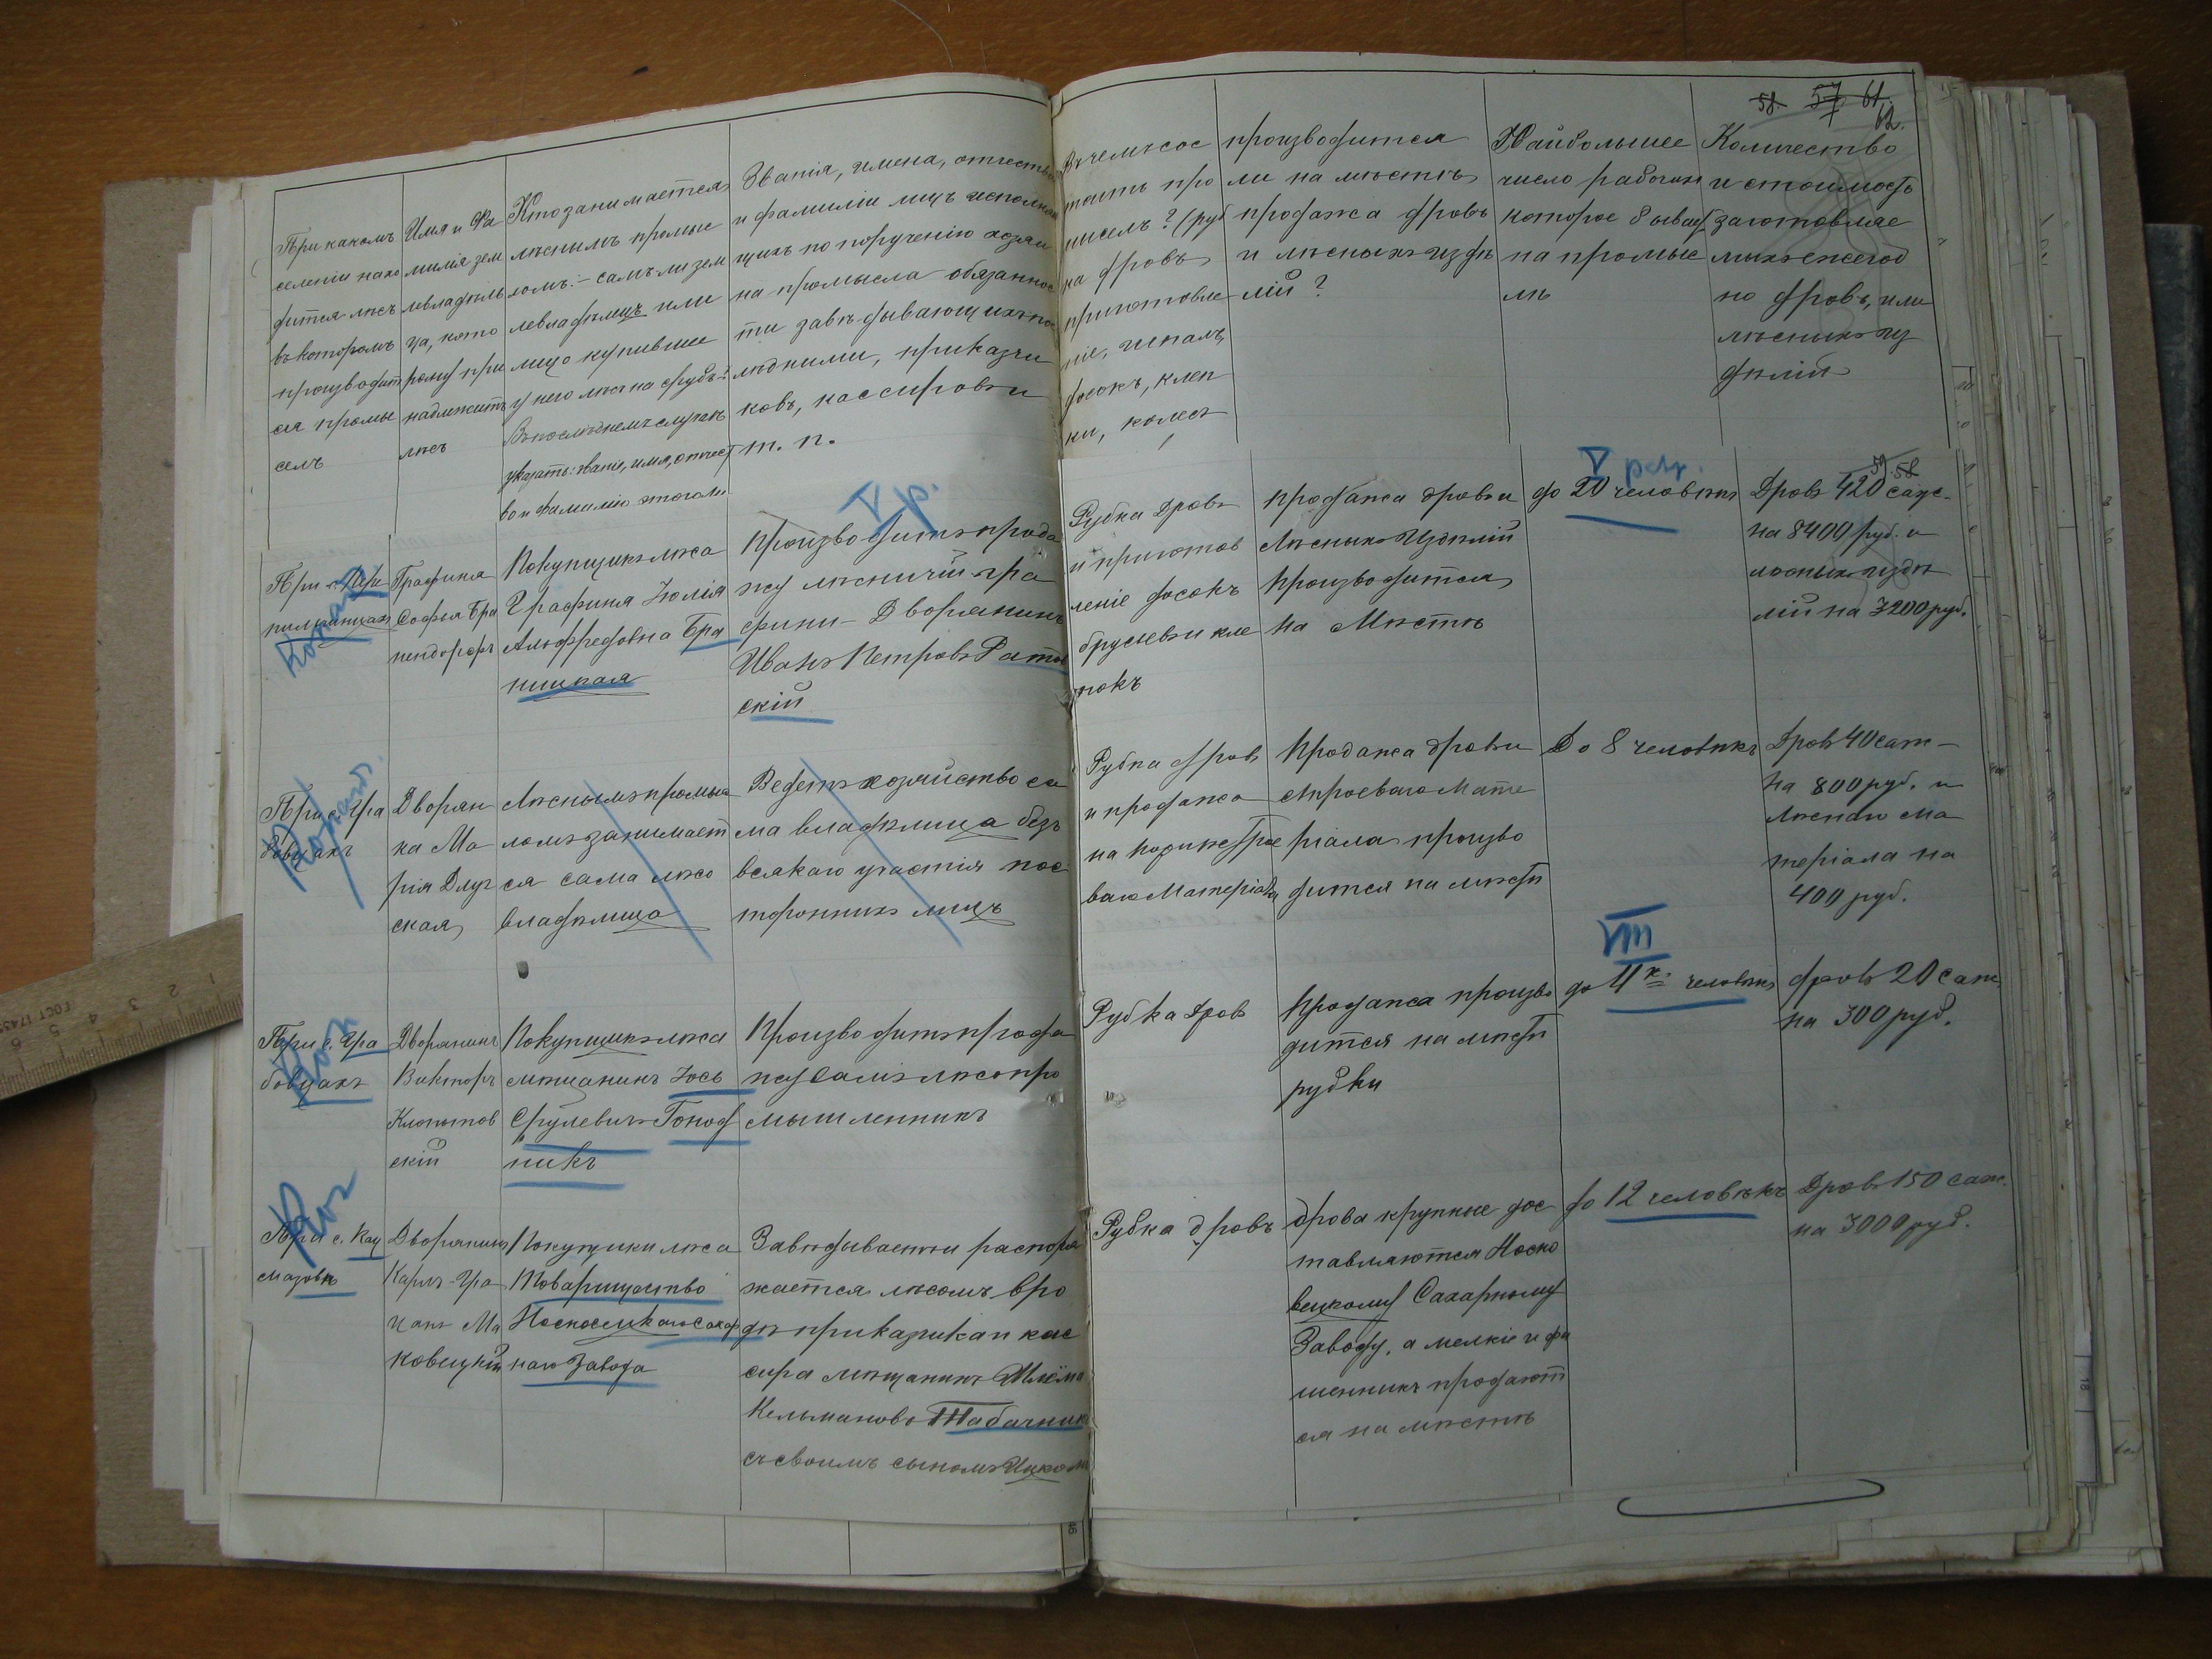 58. 57 61.
62.
При какомъ
селеніи нахо
дится лѣсъ
въ которомъ
производит
ся промы
селъ
Имя и Фа
милія зем
левладѣль
ца, кото
рому при
надлежитъ
лѣсъ
Кто занимается
лѣснымъ промыс
ломъ:- самъ ли зем
левладѣлецъ или
лицо купившее
у него лѣсъ на срубъ?
Въ послѣднемъ случаѣ
указать: званіе, имя, отчест
во и фамилію этого ли
Званія, имена, отчества
и фамиліи лицъ исполняю
щихъ по порученію хозяи
на промысла обязаннос
ти завѣдывающихъ
людьми, приказчи
ковъ, кассировъ и
т. п.
Въ чемъ сос
тоитъ про
мыселъ? (руб
ка дровъ
приготовле
ніе, шпалъ,
досокъ, клеп
ки, колесъ
производится
ли на мѣстѣ
продажа дровъ
и лѣсныхъ издѣ
лій?
Наибольшее
число рабочихъ
которое бывает
на промыс
лѣ
Количество
и стоимость
заготовляе
мыхъ ежегод
но дровъ, или
лѣсныхъ из
дѣлій
V р.
V
59. 58
При с.
Графиня
Софья
Покупщикъ лѣса
Графиня Юлія
Альфредовна Бра
ницкая
Производитъ прода
жу лѣсничій гра
фини - Дворянинъ
Иванъ Петровъ
скій
Рубка дровъ
и приготов
леніе досокъ
брусьевъ и кле
покъ
продажа дровъ и
Лѣсныхъ Издѣлій
производится
на Мѣстѣ
до 20 человѣкъ
Дровъ 420 саж-
на 8400 руб. и
лѣсныхъ издѣ
лій на 3200 руб.
При с. Гра
бовцахъ
Дворян
ка Ма
рія Длуг
ская
Лѣснымъ промыс
ломъ занимает
ся сама лѣсо
владѣлица
Ведетъ хозяйство са
ма владѣлица безъ
всякаго участія пос
тороннихъ лицъ
Рубка дровъ
и продажа
ваго Матеріала
Продажа дровъ и
строеваго Мате
ріала произво
дится на мѣстѣ
До 8 человѣкъ
Дровъ 40 саж-
на 800 руб. и
Лѣснаго ма
теріала на
400 руб.
VIII
При с. Гра
бовцахъ
Дворянинъ
Викторъ
Клопотов
скій
Покупщикъ лѣса
мѣщанинъ Іось
Срулевичъ Гопод
никъ
Производитъ прода
жу Самъ лѣсопро
мышленникъ
Рубка дровъ
Продажа произво
дится на мѣстѣ
рубки
до 4хъ человѣкъ
дровъ 20 саж
на 300 руб.
При с.
Дворянинъ
Карлъ
Ма
ковецкій
Покупщики лѣса
Товарищество
Носковецкаго сахар
наго Завода
Завѣдываетъ и распоря
жается лѣсомъ в ро
дѣ приказчика и кас
сира мѣщанинъ Шлёма
Кельмановъ Табачникъ
съ своимъ сыномъ Ицкомъ
Рубка дровъ
дрова крупные дос
тавляются Носко
вецкому Сахарному
Заводу, а мелкіе и фа
шинникъ продают
ся на мѣстѣ
до 12 человѣкъ
Дровъ 150 саж.
на 3000 руб.